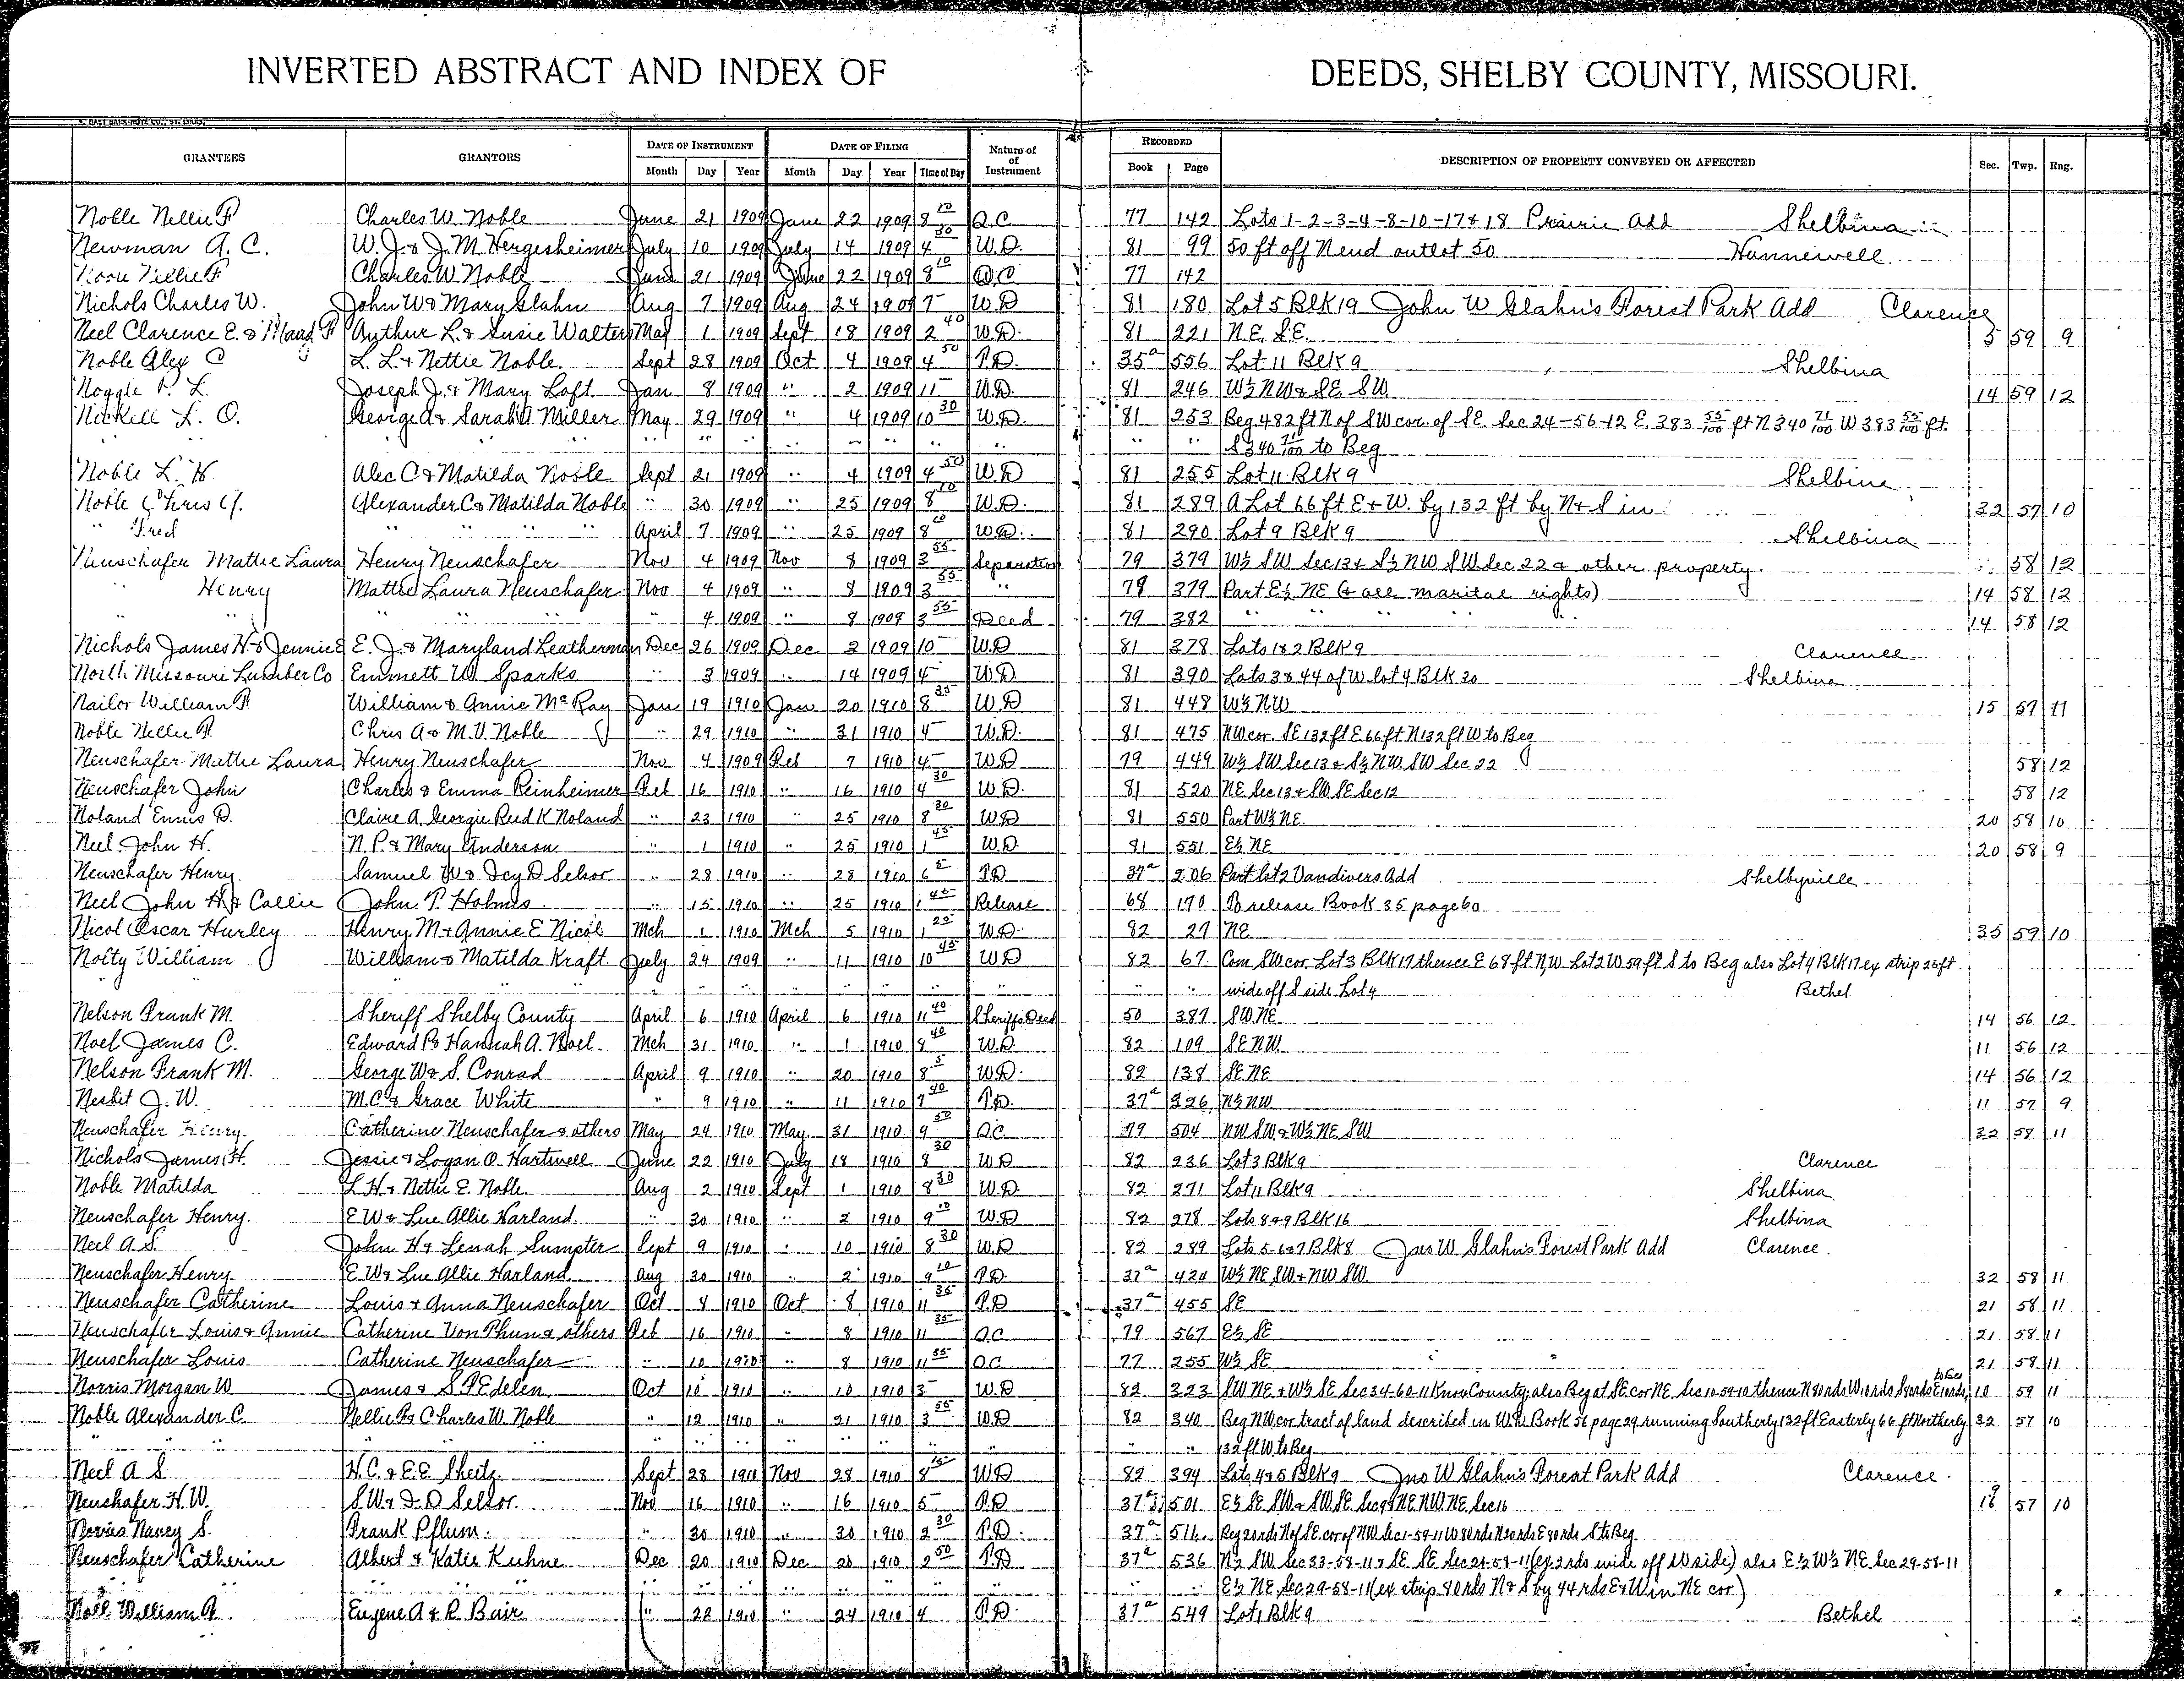 INVERTED ABSTRACT AND INDEX OF DEEDS, SHELBY COUNTY, MISSOURI.
GRANTEES GRANTORS DATE OF INSTRUMENT DATE OF FILING Nature of Instrument RECORDED DESCRIPTION OF PROPERTY CONVEYED OR AFFECTED Sec. Twp. Rng.
Month Day Year Month Day Year Time of Day Book Page
Noble Nellie F Charles W. Noble June 21 1909 June 22 1909 8 10 Q.C. 77 142 Lots 1-2-3-4-8-10-17 & 18 Prairie Add Shelbina
Newman A. C. W. J. & J. M. Hergesheimer July 10 1909 July 14 1909 4 30 W.D. 81 99 50 ft off N end outlot 50 Hunnewell
Nellie F Charles W Noble June 21 1909 June 22 1909 8 10 Q.C 77 142
Nichols Charles W. John W & Mary Glahn Aug 7 1909 Aug 24 1909 7 W.D 81 180 Lot 5 Blk 19 John W Glahn's Forest Park Add Clarence
Neel Clarence E. & Maud F Arthur L. & Susie Walters May 1 1909 Sept 18 1909 2 40 W.D. 81 221 N.E. S.E. 5 59 9
Noble Alex C L. L. & Nettie Noble Sept 28 1909 Oct 4 1909 4 50 T.D. 35a 556 Lot 11 Blk 9 Shelbina
Noggle P. L. Joseph J. & Mary Loft Jan 8 1909 " 2 1909 11 W.D. 81 246 W½ NW & SE SW 14 59 12
Nickell L. O. George A & Sarah A Miller May 29 1909 " 4 1909 10 30 W.D. 81 253 Beg 482 ft N of SW cor. of SE Sec 24-56-12 E. 383 55/100 ft N 340 71/100 W 383 55/100 ft.
" " " " " " " " S 340 71/100 to Beg
Noble L. H. Alec C & Matilda Noble Sept 21 1909 " 4 1909 4 50 W.D 81 255 Lot 11 Blk 9 Shelbina
Noble Chris A. Alexander C & Matilda Noble " 30 1909 " 25 1909 8 10 W.D. 81 289 A Lot 66 ft E & W. by 132 ft by N & S in 32 57 10
" Fred " " " April 7 1909 " 25 1909 8 W.D. 81 290 Lot 9 Blk 9 Shelbina
Neuschafer Mattie Laura Henry Neuschafer Nov 4 1909 Nov 8 1909 3 55 Separation 79 379 W½ SW Sec 13 & S½ NW SW Sec 22 & other property 58 12
" Henry Mattie Laura Neuschafer Nov 4 1909 " 8 1909 3 55 " 79 379 Part E½ NE (& all marital rights) 14 58 12
" 4 1909 " 8 1909 3 55 Deed 79 382 " " " 14 58 12
Nichols James H. & Jennie E E. J. & Maryland Leatherman Dec 26 1909 Dec 3 1909 10 W.D 81 378 Lots 1 & 2 Blk 9 Clarence
North Missouri Lumber Co Emmett W. Sparks " 3 1909 " 14 1909 4 W.D 81 390 Lots 3 & 44 of W lot 4 Blk 30 Shelbina
Nailor William F. William & Annie McRay Jan 19 1910 Jan 20 1910 8 35 W.D 81 448 W½ NW 15 57 11
Noble Nellie F. Chris A & M. V. Noble " 29 1910 " 31 1910 4 W.D. 81 475 NW cor. SE 132 ft E 66 ft N 132 ft W to Beg
Neuschafer Mattie Laura Henry Neuschafer Nov 4 1909 Feb 7 1910 4 W.D 79 449 W½ SW Sec 13 & S½ NW SW Sec 22 58 12
Neuschafer John Charles & Emma Reinheimer Feb 16 1910 " 16 1910 4 30 W.D. 81 520 NE Sec 13 & SW SE Sec 12 58 12
Noland Ennis D. Claire A. Georgie Reed K Noland " 23 1910 " 25 1910 8 30 W.D 81 550 Part W½ NE. 20 58 10
Neel John H. N. P. & Mary Anderson " 1 1910 " 25 1910 1 45 W.D. 81 551 E½ NE 20 58 9
Neuschafer Henry Samuel W & Icy D Selsor " 28 1910 " 28 1910 6 5 T.D 37a 206 Part lot 2 Vandivers Add Shelbyville
Neel John H & Callie John T. Holmes " 15 1910 " 25 1910 1 45 Release 68 170 To release Book 35 page 60
Nicol Oscar Hurley Henry M. & Annie E Nicol Mch 1 1910 Mch 5 1910 1 25 W.D. 82 27 NE 35 59 10
Nolty William William & Matilda Kraft July 24 1909 " 11 1910 10 45 W.D 82 67 Com SW cor. Lot 3 Blk 17 thence E 68 ft N, W. Lot 2 W 59 ft S to Beg also Lot 4 Blk 17 ex strip 25 ft
" " " " " " " " wide off S side Lot 4 Bethel
Nelson Frank M. Sheriff Shelby County April 6 1910 April 6 1910 11 40 Sheriff's Deed 50 387 SW. NE 14 56 12
Noel James C. Edward P & Hannah A. Noel Mch 31 1910 " 1 1910 8 40 W.D 82 109 SE NW 11 56 12
Nelson Frank M. George W & S. Conrad April 9 1910 " 20 1910 8 5 W.D. 82 138 SE NE 14 56 12
Nesbit J. W. M. C & Grace White " 9 1910 " 11 1910 9 40 T.D. 37a 326 N½ NW 11 57 9
Neuschafer Henry Catherine Neuschafer & others May 24 1910 May 31 1910 9 50 Q.C. 79 504 NW SW & W½ NE SW 32 58 11
Nichols James H. Jessie & Logan O. Hartwell June 22 1910 July 18 1910 8 30 W.D 82 236 Lot 3 Blk 9 Clarence
Noble Matilda L. H & Nettie E. Noble Aug 2 1910 Sept 1 1910 8 30 W.D. 82 271 Lot 11 Blk 9 Shelbina
Neuschafer Henry E W & Lue Allie Harland " 30 1910 " 2 1910 9 10 W.D 82 278 Lots 8 & 9 Blk 16 Shelbina
Neel A. S. John H & Lenah Sumpter Sept 9 1910 " 10 1910 8 30 W.D 82 289 Lots 5-6 & 7 Blk 8 Jno W. Glahn's Forest Park Add Clarence
Neuschafer Henry E W & Lue Allie Harland Aug 30 1910 " 2 1910 9 10 T.D. 37a 424 W½ NE SW & NW SW 32 58 11
Neuschafer Catherine Louis & Anna Neuschafer Oct 8 1910 Oct 8 1910 11 35 T.D 37a 455 SE 21 58 11
Neuschafer Louis & Annie Catherine Von Thun & others Feb 16 1910 " 8 1910 11 35 Q.C. 79 567 E½ SE 21 58 11
Neuschafer Louis Catherine Neuschafer " 10 1910 " 8 1910 11 35 Q.C 77 255 W½ SE 21 58 11
Norris Morgan W. James & S. F Edelen Oct 10 1910 " 10 1910 3 W.D 82 323 SW NE & W½ SE Sec 34-60-11 Knox County, also Beg at SE cor NE Sec 10-59-10 thence N 80 rds W 10 rds S 80 rds E 10 rds to Beg 10 59 11
Noble Alexander C. Nellie F & Charles W. Noble " 12 1910 " 21 1910 3 55 W.D 82 340 Beg NW cor tract of land described in W.D. Book 56 page 29 running Southerly 132 ft Easterly 66 ft Northerly 32 57 10
" " " " " " " " 132 ft W to Beg
Neel A S H. C. & E. E. Sheetz Sept 28 1910 Nov 28 1910 8 15 W.D 82 394 Lots 4 & 5 Blk 9 Jno W Glahn's Forest Park Add Clarence
Neuschafer H. W. S W & I. D Selsor Nov 16 1910 " 16 1910 5 T.D 37a 501 E½ SE SW & SW SE Sec 9 & NE NW NE Sec 16 9 16 57 10
Nancy S. Frank Pflum " 30 1910 " 30 1910 2 30 T.D. 37a 516 Beg 20 rds N of SE cor of NW Sec 1-59-11 W 80 rds N 20 rds E 80 rds S to Beg
Neuschafer Catherine Albert & Katie Kuhne Dec 20 1910 Dec 20 1910 2 50 T.D 37a 536 N½ SW Sec 33-58-11 & SE SE Sec 29-58-11 (ex 2 rds wide off W side) also E½ W½ NE Sec 29-58-11
" " " " " " " " E½ NE Sec 29-58-11 (ex strip 80 rds N & S by 44 rds E & W in NE cor.)
William A. Eugene A & R. Bair " 22 1910 " 24 1910 4 T.D. 37a 549 Lot 1 Blk 9 Bethel